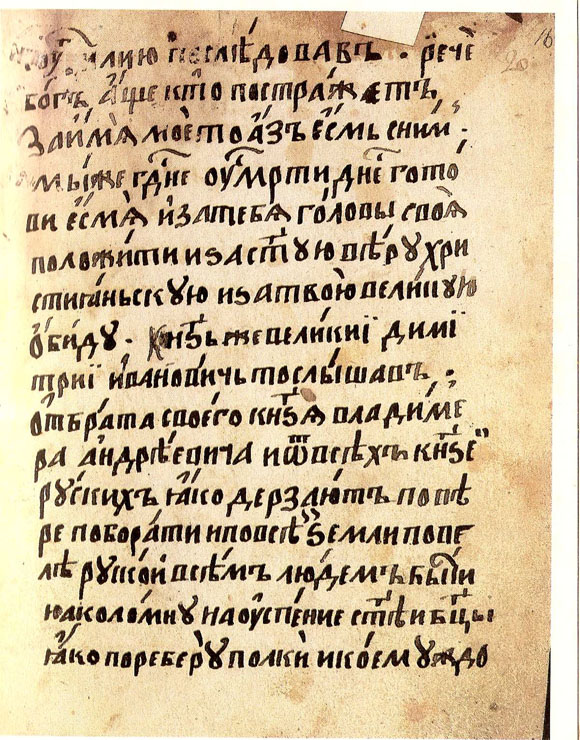 послѣдовавъ · рече
богъ аще кто постражетъ
за имѧ мое то азъ есмь сними ·
мы же гд҃не оумрти дн҃е гото
ви есмѧ и за тебѧ головы своѧ
положити и за ст҃ꙋю вѣрꙋ хри
стиганьскꙋю и за твою великꙋю
обидꙋ · кн҃ѕь же великиї димі
триї ивановичь то слышавъ ·
от брата своего кн҃ѕѧ владиме
ра андрѣевича и ѿ всѣхъ кн҃ѕе
рꙋскихъ ꙗко дерзают по вѣ
ре поборати и повсѣ ѕемли повє
лѣ рꙋской всѣмъ людемъ быти
на коломнꙋ на оуспение ст҃ѣи бц҃ы
ꙗко переберꙋ полки и коемꙋждо